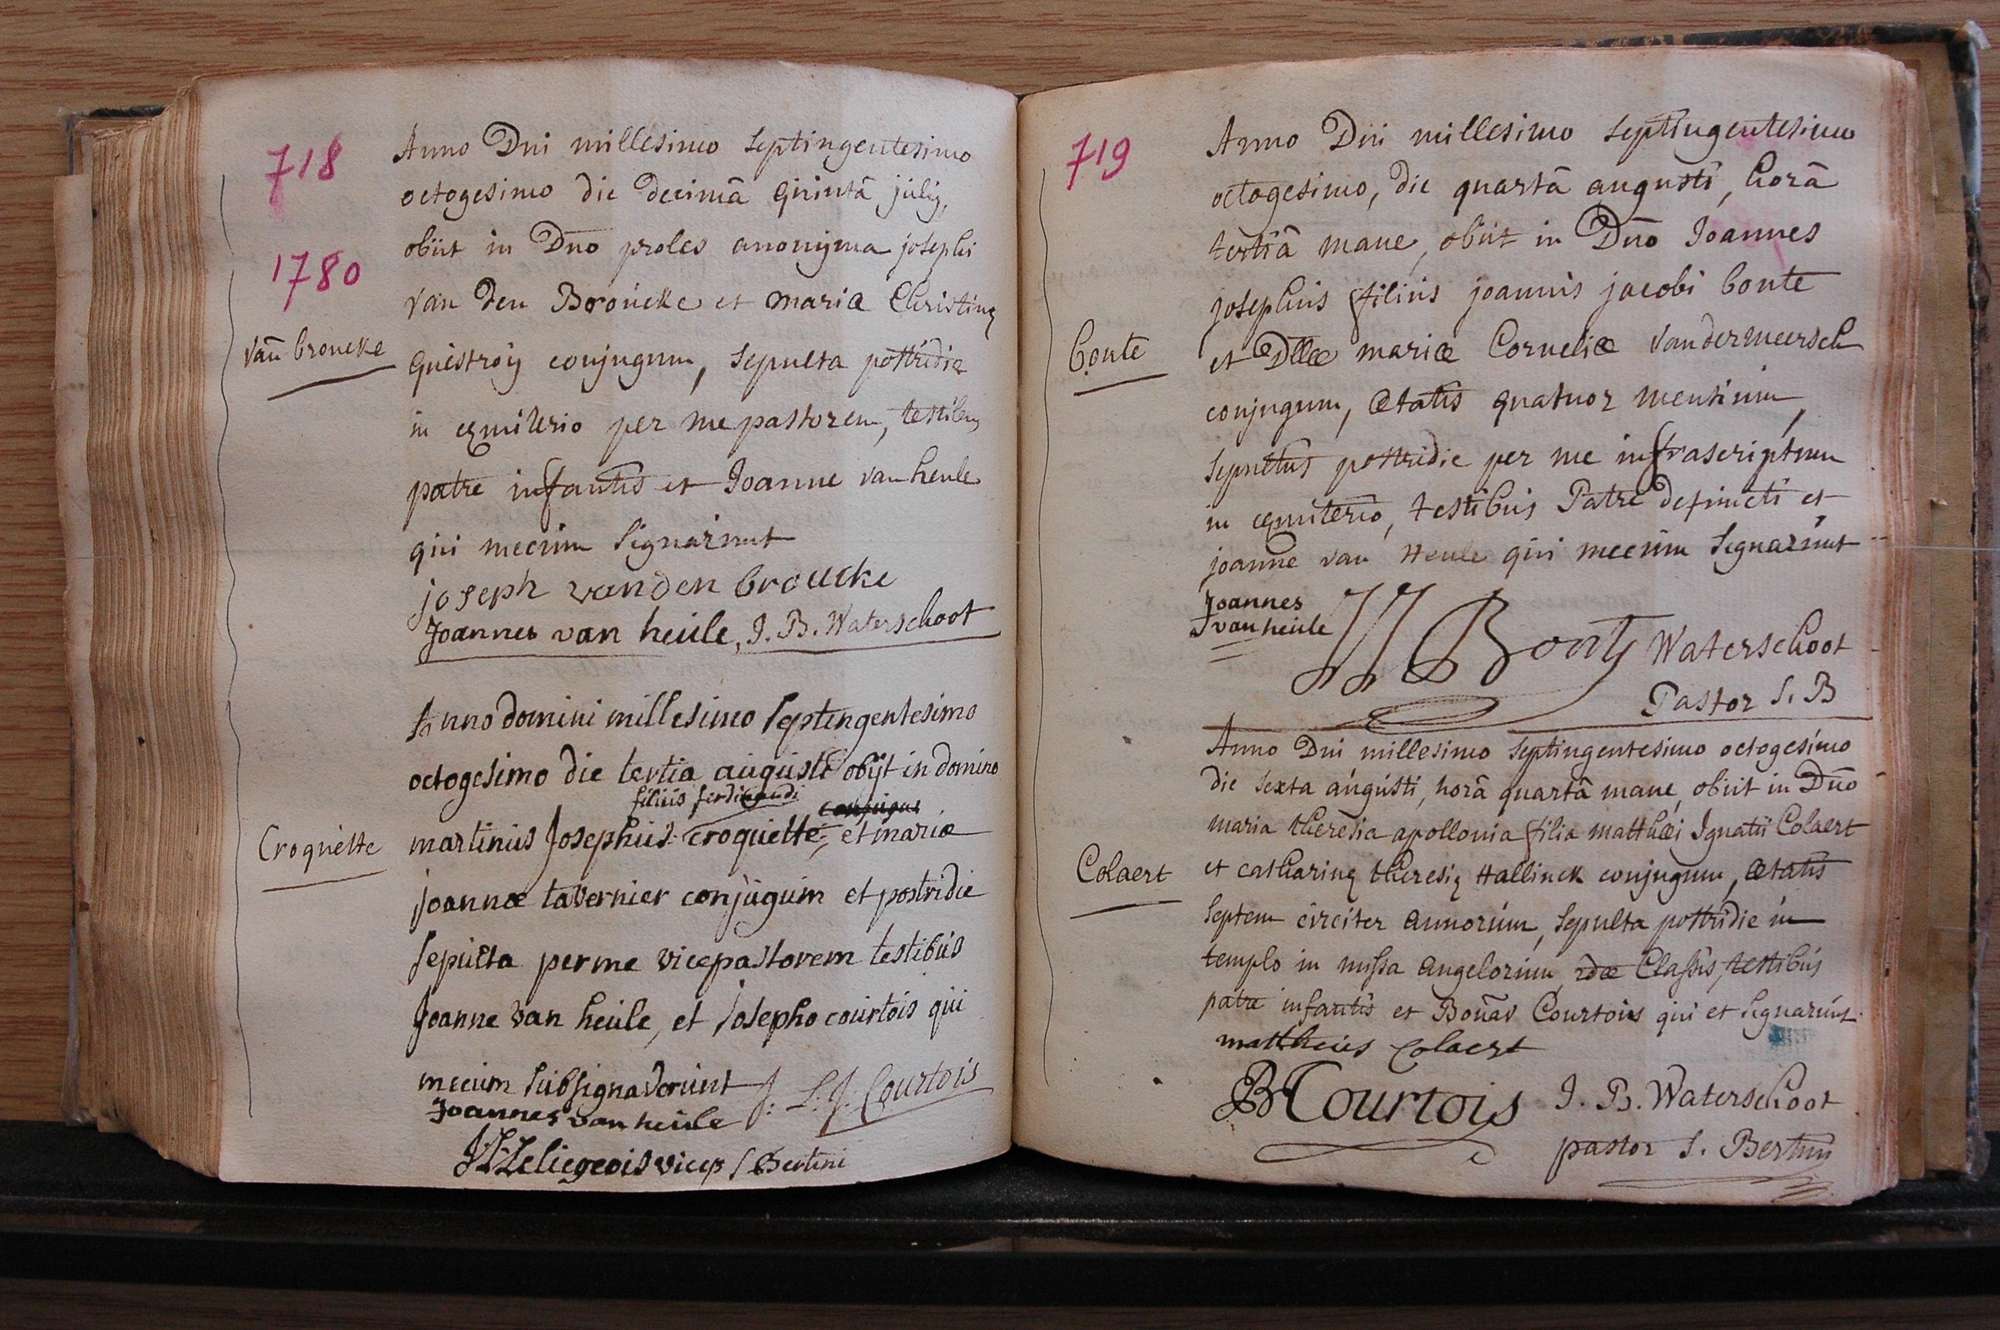 718
1780
Anno Dni millesimo septingentesimo
octogesimo die decimâ quintâ julij,
obiit in Dno proles anonyma josephi
van den Broucke et mariæ Christinę
questroij conjugum, sepulta postridie
in cęmiterio per me pastorem, testibus
patre infantis et Joanne van heule
qui mecum signarunt
van broucke
joseph vanden broucke
Joannes van heule, J. B. Waterschoot
Anno domini millesimo septingentesimo
octogesimo die tertia augusti obijt in domino
filius ferdinandi conjugus
martinus Josephus croquette et mariæ
joannæ tavernier conjugum et postridie
sepulta per me vicepastorem testibus
Joanne van heule, et Josepho courtois qui
mecum subsignaverunt
Croquette
J. L. J. Courtois
Joannes van heule
Leliegeois vicep S Bertini
719
Anno Dni millesimo septingentesimo
octogesimo, die quartâ augusti, horâ
tertiâ mane, obiit in Dno Joannes
josephus filius joannis jacobi bonte
et Dllæ mariæ Corneliæ vandermeersch
conjugum, ætatis quatuor mensium,
sepultus postridie per me infrascriptum
in cęmiterio, testibus Patre defuncti et
joanne van Heule qui mecum signarunt
bonte
Joannes
van heule
JJ Bonte
Waterschoot
Pastor S. B
Anno Dni millesimo septingentesimo octogesimo
die sexta augusti, horâ quartâ mane, obiit in Dno
maria theresia apollonia filia matthæi Ignatii Colaert
et catharinę theresię Hallinck conjugum, ætatis
septem circiter annorum, sepulta postridie in
templo in missa angelorum, 2dæ Classis, testibus
patre infantis et Bonav Courtois qui et signarunt
Colaert
mattheus colaert
B Courtois
J. B. Waterschoot
pastor S. Bertini